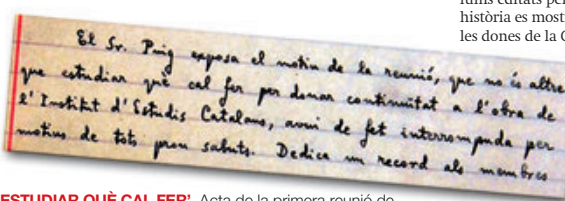 història es most
les dones de la C
El Sr. Puig exposa el motiu de la reunió, que no és altre
que estudiar què cal fer per donar continuïtat a l'obra de
l'Institut d'Estudis Catalans, avui de fet interrompuda per
motius de tots prou sabuts. Dedica un record als membres
ESTUDIAR QUÈ CAL FER' Acta de la primera reunió de